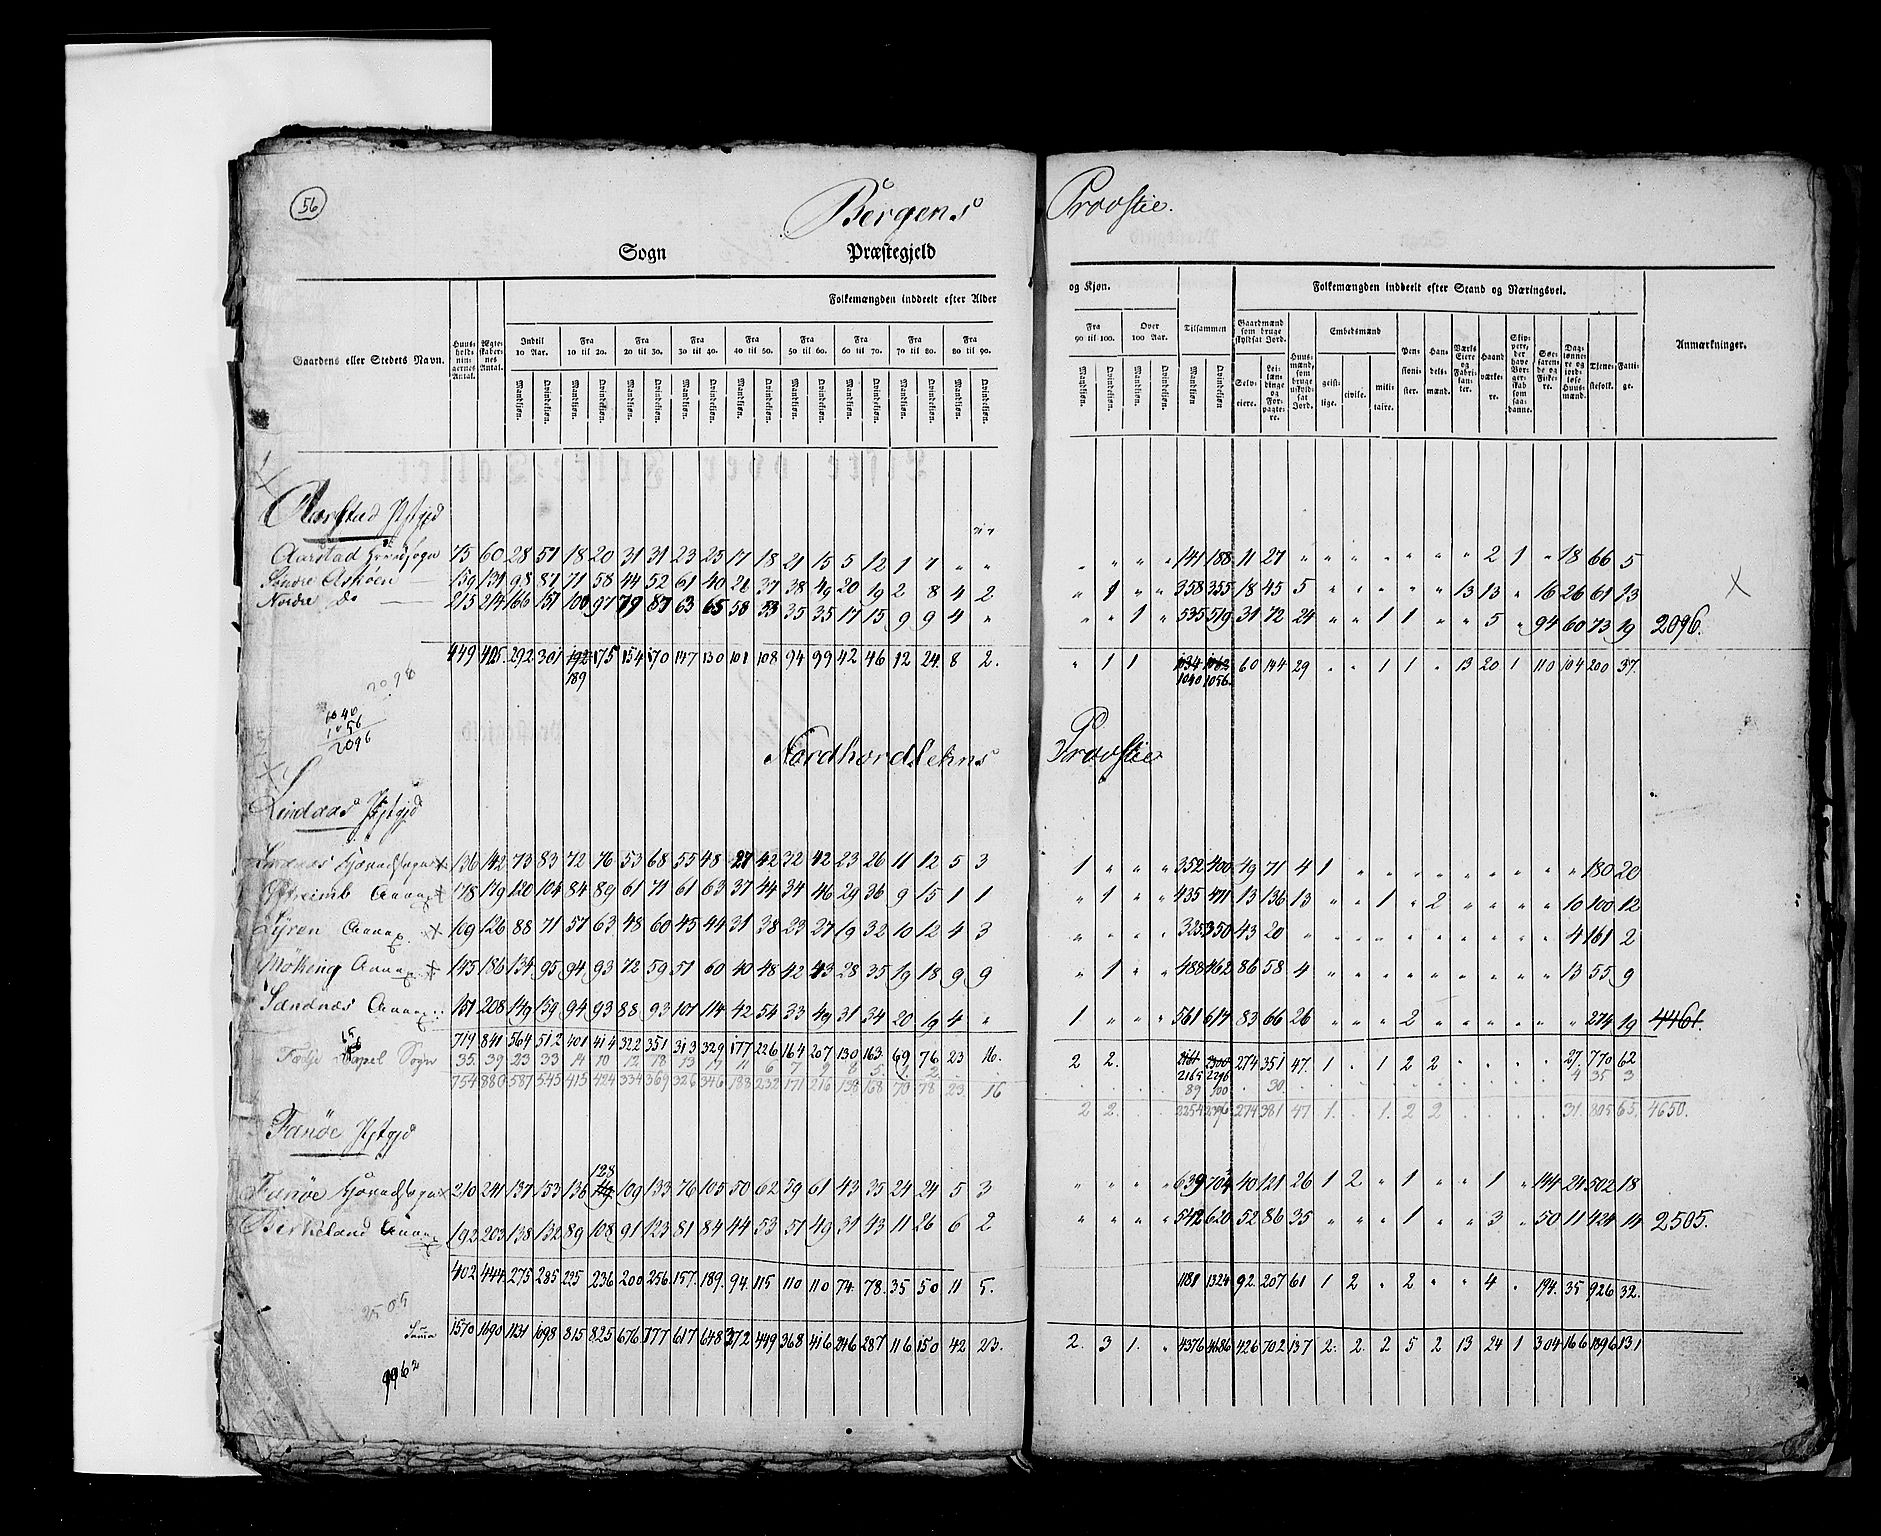 56
Bergens Provstie.
Sogn Præstegjeld
Folkemængden inddeelt efter Alder og Kjøn. Folkemængden inddeelt efter Stand og Næringsvei.
Gaardens eller Stedets Navn. Huusholdningernes Antal. Ægteskabernes Antal. Indtil 10 Aar. Fra 10 til 20. Fra 20 til 30. Fra 30 til 40. Fra 40 til 50. Fra 50 til 60. Fra 60 til 70. Fra 70 til 80. Fra 80 til 90. Fra 90 til 100. Over 100 Aar. Tilsammen Gaardmænd som bruge skyldsat Jord. Huusmænd, som bruge uskyldsat Jord. Embedsmænd Pensionister. Handelsmænd. Værks Eiere og Fabrikanter. Haandværkere. Søefarende og Fiskere. Tjenestefolk. Fattige. Anmærkninger.
Mandkjøn. Qvindekjøn. Selveiere. Leilændinge og Forpagtere. geistlige. civile. militaire.
Aarstad Pstgjd
Aarstad Hovedsogn 75 60 28 51 18 20 31 31 23 25 17 18 21 15 5 12 1 7 " " " " " " 141 188 11 27 " " " " " " " 2 1 " 18 66 5
Søndre Askøen 159 131 98 87 71 58 44 52 61 40 26 37 38 49 20 19 2 8 4 2 " 1 " " 358 355 18 45 5 " " " " " 13 13 " 16 26 61 13
Nordre do 215 214 166 157 100 97 79 87 63 65 58 53 35 35 17 15 9 9 4 " " " 1 " 535 519 31 72 24 " " 1 1 " " 5 " 94 60 73 19 2096.
449 405. 292 301 192 175 154 170 147 130 101 108 94 99 42 46 12 24 8 2. " 1 1 1034 1062 60 144 29 " " 1 1 " 13 20 1 110 104 200 37.
189 1040 1056.
2098
1040
1056
2096
Nordhordlehns Provstie
Lindaas Pstgjd
Hovedsogn 136 142 73 83 72 76 53 68 55 48 27 42 32 42 23 26 11 12 5 3 1 " " " 352 400 49 71 4 1 " " " " " " " " " 180 20
Annex 178 179 120 104 84 89 61 71 61 63 37 44 34 46 29 36 9 15 1 1 " 1 " " 435 471 13 136 13 " " 1 " 2 " " " " 10 100 12
Annex. 109 126 88 71 57 63 48 60 45 44 31 38 23 27 19 32 10 12 4 3 " " " " 325 350 43 20 " " " " " " " " " " 4 161 2
Annex. 145 186 134 95 94 93 72 59 51 60 40 48 42 43 28 35 19 18 9 9 " 1 " " 488 462 86 58 4 " " " " " " " " " 13 55 9
Sandnæs Annex. 151 208 149 159 94 93 88 93 101 114 42 54 33 49 31 34 20 19 4 " 1 " " " 561 617 83 66 26 " " " 2 " " " " " " 274 19 4461.
719 841 564 512 401 414 322 351 313 329 177 226 164 207 130 163 69 76 23 16. 2 2. 2161 2300 274 351 47. 1 . 1 2 2 27 770 62
Capel Sogn 35. 39 23 33 14 10 12 18 13 17 11 6 7 9 8 5 1 2 2165 2296 4 35 3
89 100 30
754 880 587 545 415 424 334 369 326 346 188 232 171 216 138 168 70 78 23. 16 2 2. 2254 2396 274 381 47 1. . 1. 2 2 31. 805 65. 4650.
Fanøe Pstgjd
128
Fanøe Hovedsogn 210 241 137 153 136 119 109 133 76 105 50 62 59 61 43 35 24 24 5 3 " " " " 639 704 40 121 26 1 2 " 1 " " 1 " 144 24 502 18
Birkeland Annex 192 203 138 132 89 108 91 123 81 84 44 53 51 49 31 43 11 26 6 2 " " " " 542 620 52 86 35 " " " 1 " " 3 " 50 11 424 14 2505.
402 444. 275 285 225 236 200 256. 157. 189. 94. 115 110 110 74. 78. 35 50 11 5. 1181 1324 92. 207 61 1 2 " 2 " " 4 " 194. 35 926 32.
2505
Suma 1570 1690 1131 1098 815 825 676 777 617 648 372 449 368 416 246 287 116 150 42 23. 2. 3 1. " 4376 4686 426 702 137 2. 2. 2 5 2 13 24 1 304 166 1896 131